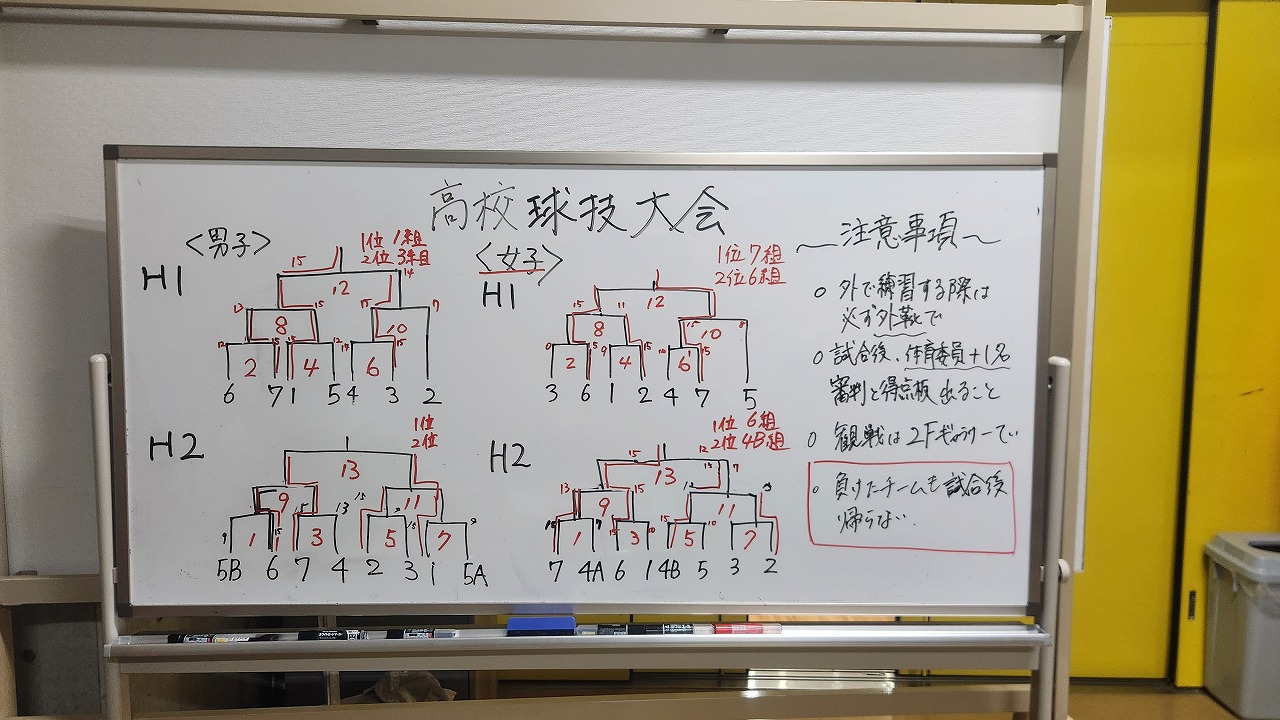 高校球技大会
<男子>
H1
1位 1組
2位 3組
15
14
12
13
15
15
7
8
10
2
4
6
6 7 1 5 4 3 2
<女子>
H1
1位 7組
2位 6組
12
11
15
8
10
2
4
6
3 6 1 2 4 7 5
H2
1位
2位
13
9
11
1
3
5
7
5B 6 7 4 2 3 1 5A
H2
1位 6組
2位 4B組
15
12
13
13
15
9
11
1
3
5
7
7 4A 6 1 4B 5 3 2
~注意事項~
○ 外で練習する際は
必ず外靴で
○ 試合後、体育委員+1名
審判と得点板 出ること
○ 観戦は2Fギャラリーで
○ 負けたチームも試合後
帰らない.